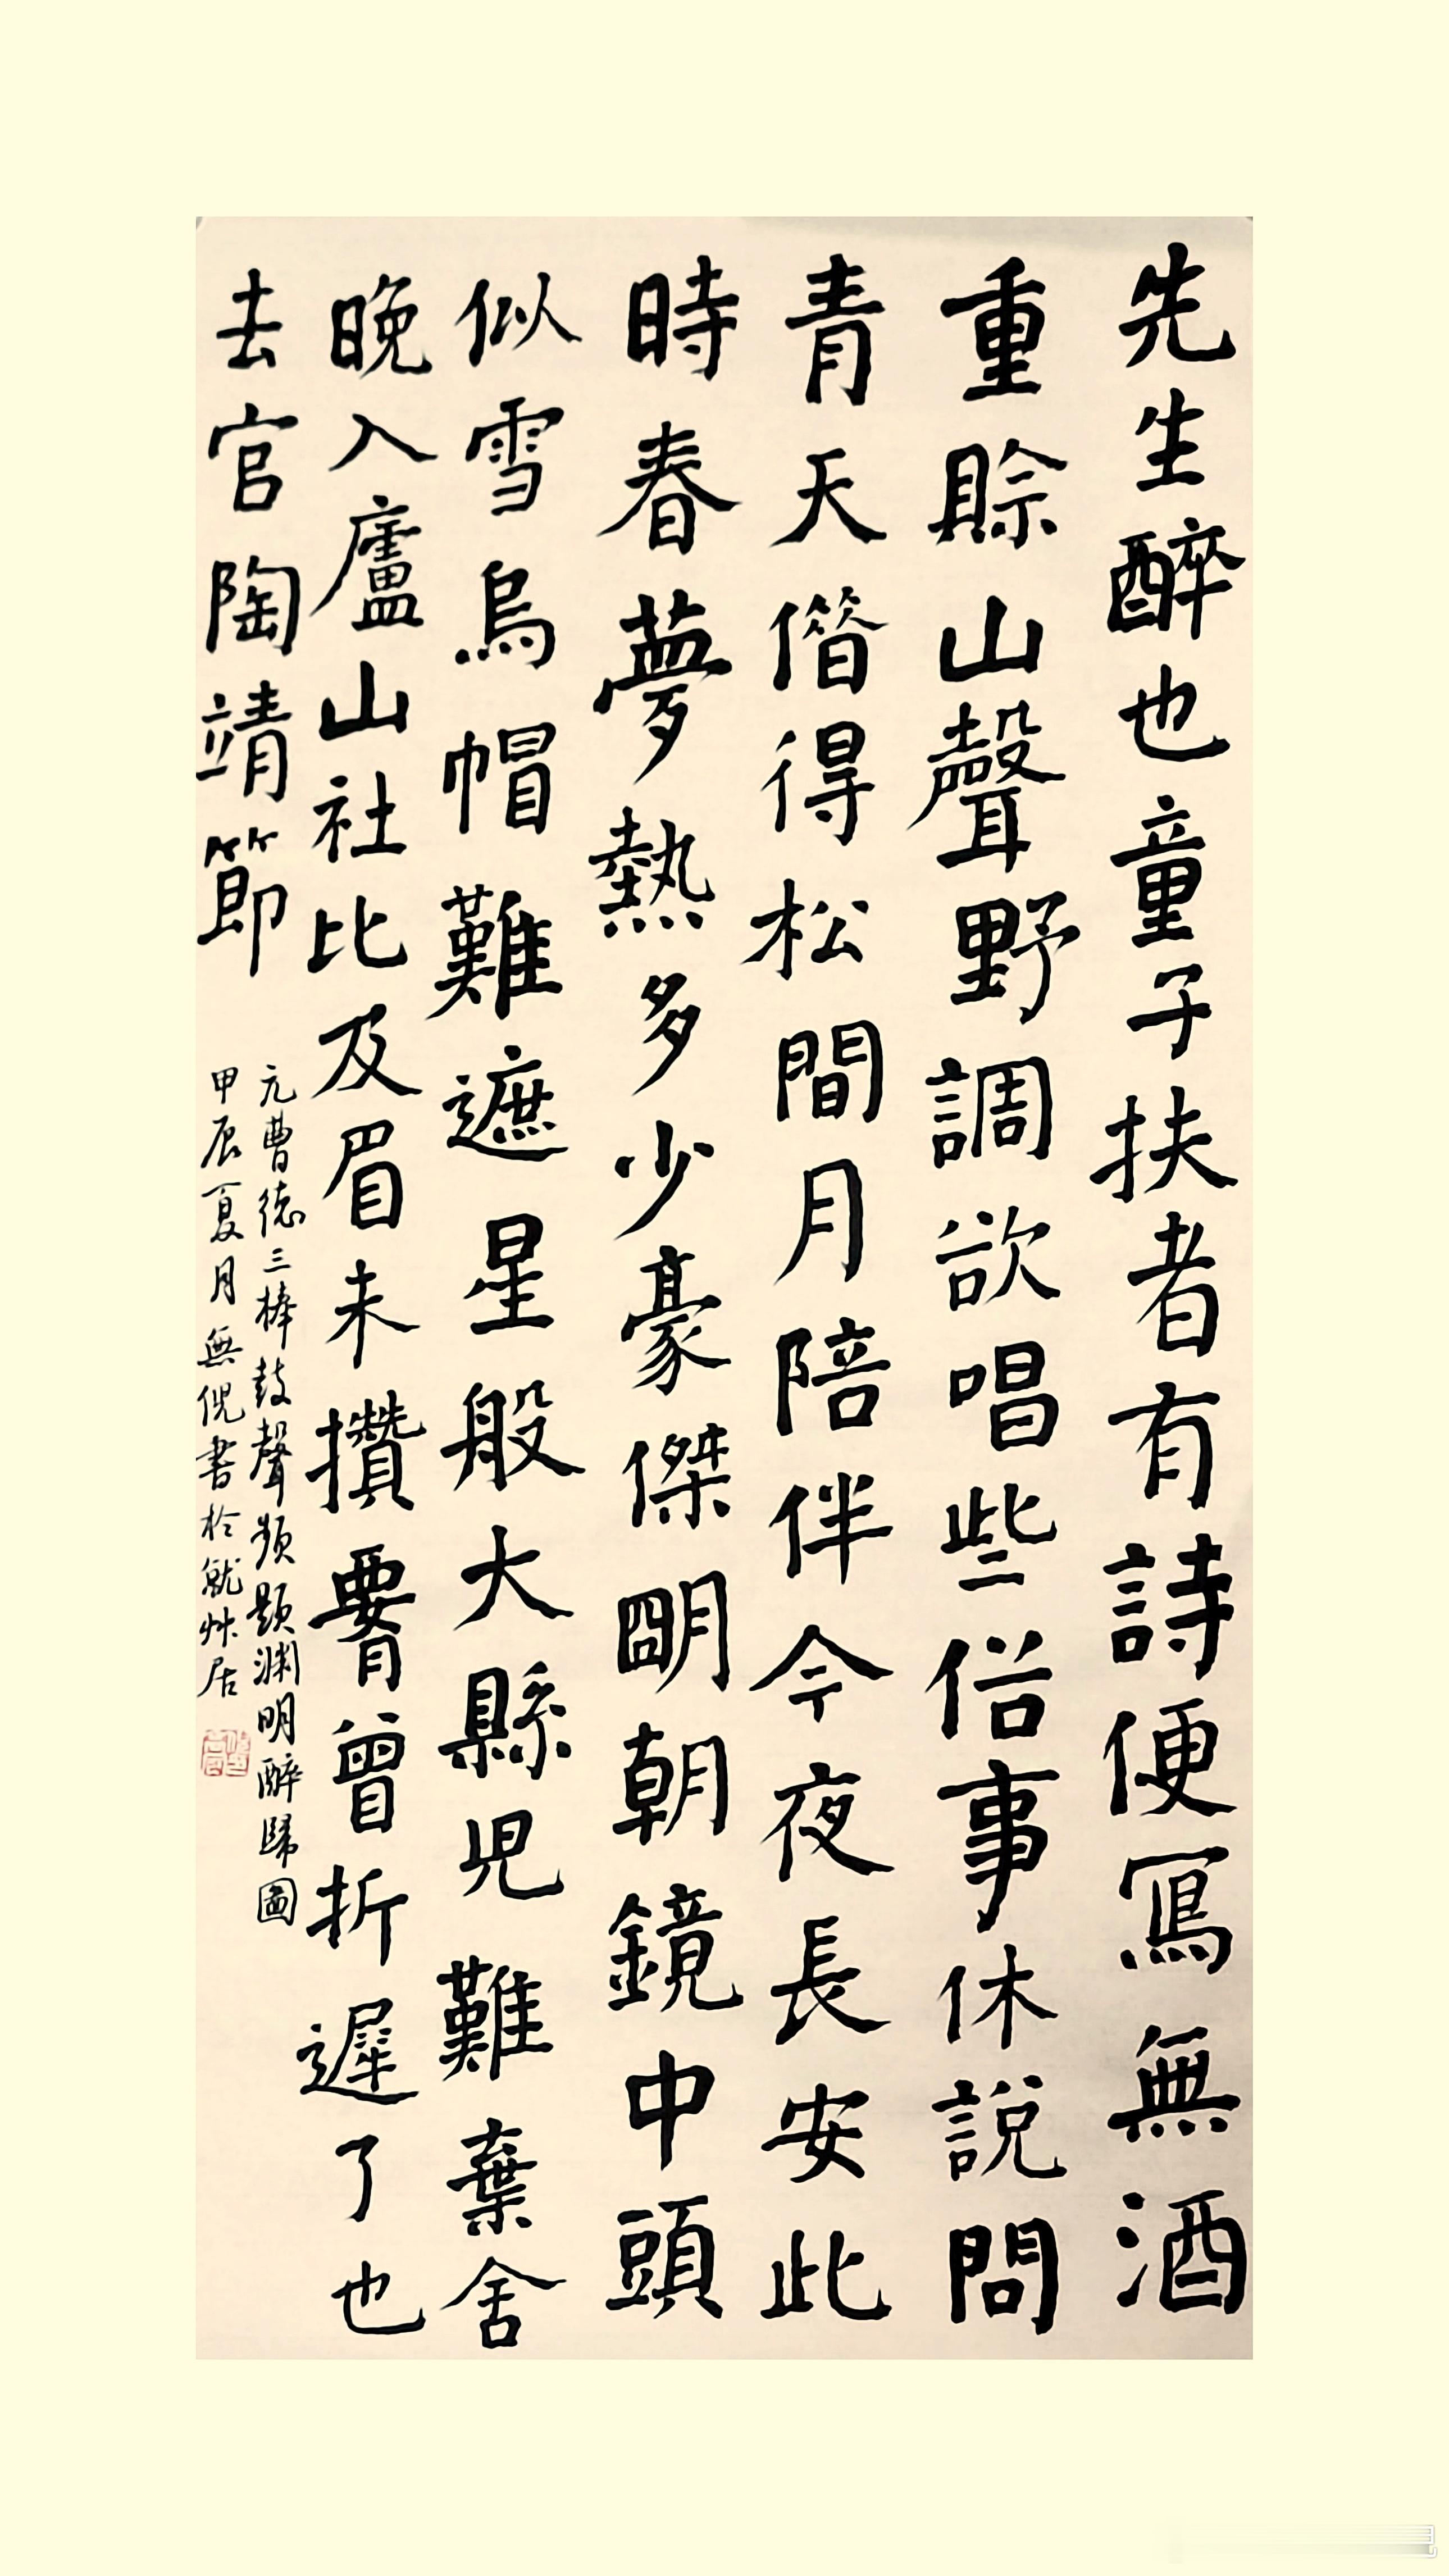 先生醉也童子扶者有詩便寫無酒
重賒山聲野調欲唱些俗事休說問
青天借得松間月陪伴今夜長安此
時春夢熱多少豪傑明朝鏡中頭
似雪烏帽難遮星般大縣兒難棄舍
晚入廬山社比及眉未攢腰曾折遲了也
去官陶靖節
元曹德三棒鼓聲頻題淵明醉歸圖
甲辰夏月無倪書於就艸居